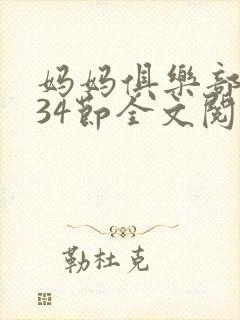 妈妈俱樂部
34節全文閱
勒杜克